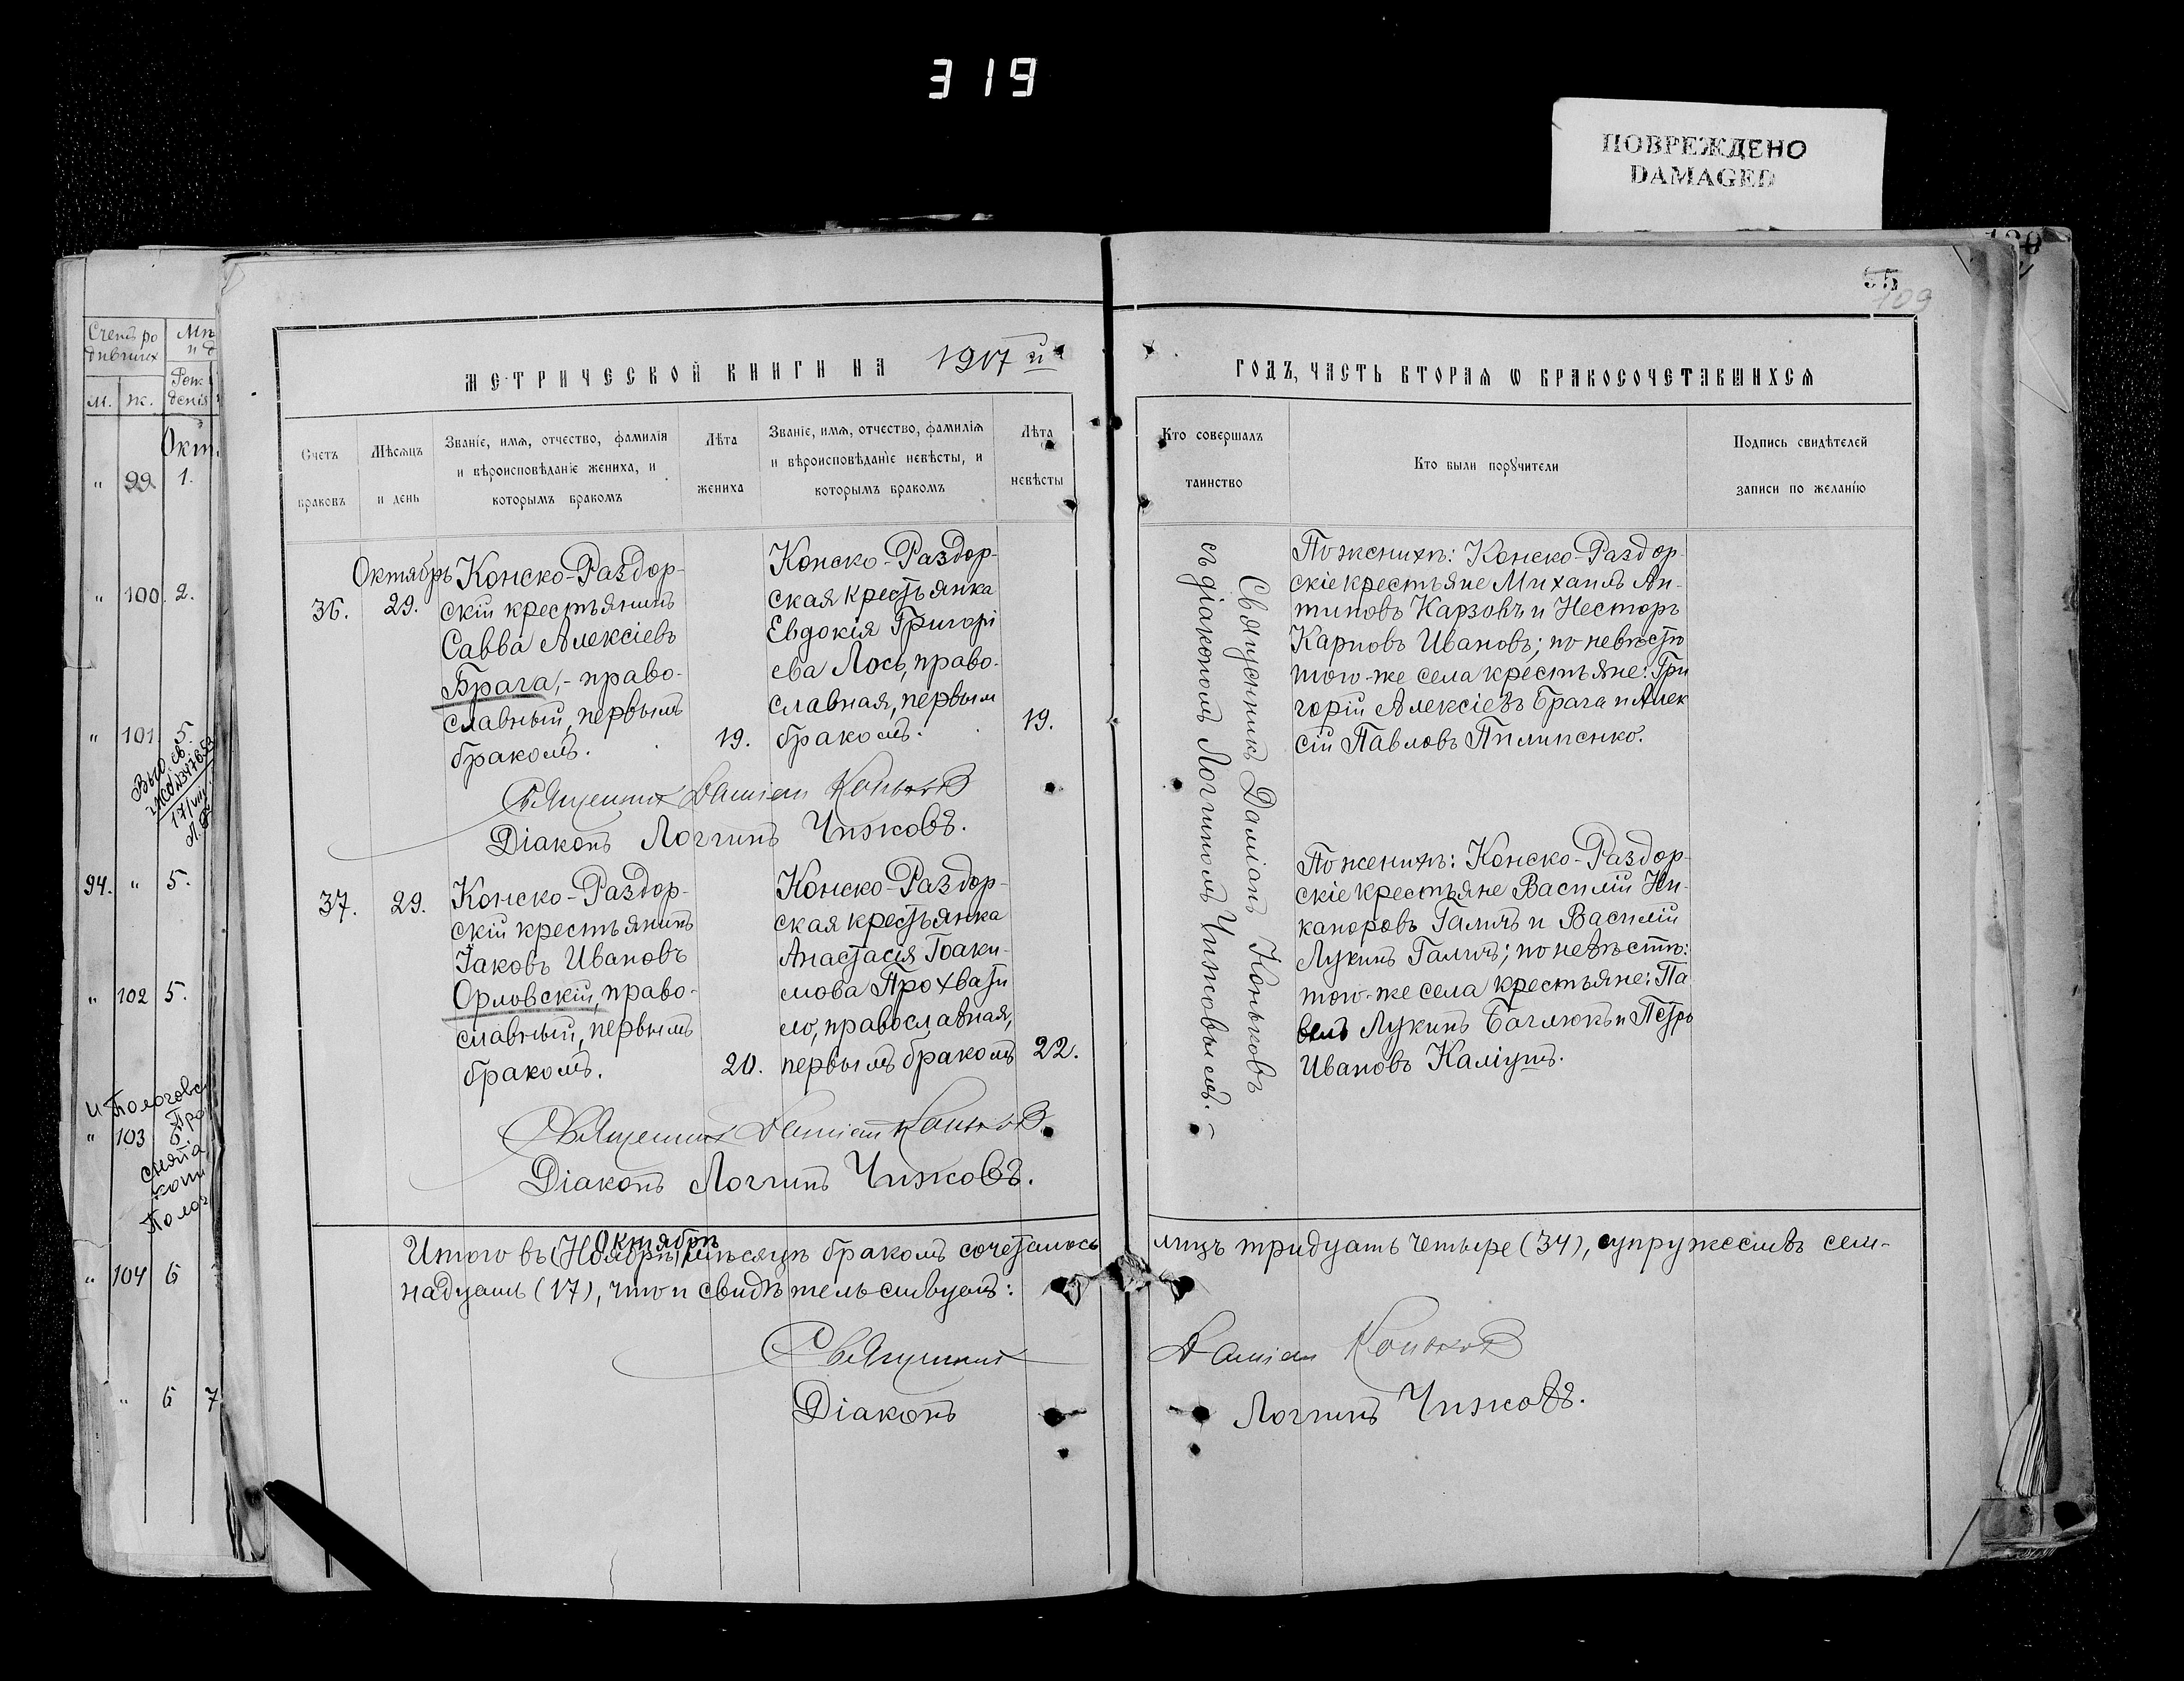 319
ПОВРЕЖДЕНО
DAMAGED
109
МЕТРИЧЕСКОЙ КНИГИ НА 1917 й
ГОДЪ, ЧАСТЬ ВТОРАЯ Ѡ БРАКОСОЧЕТАВШИХСЯ
Счетъ
браковъ
Мѣсяцъ
и день
Званіе, имя, отчество, фамилія
и вѣроисповѣданіе жениха, и
которымъ бракомъ
Лѣта
жениха
Званіе, имя, отчество, фамилія
и вѣроисповѣданіе невѣсты, и
которымъ бракомъ
Лѣта
невѣсты
Кто совершалъ
таинство
Кто были поручители
Подпись свидѣтелей
записи по желанію
36.
Октябрь
29.
Конско-Раздор-
скій крестьянинъ
Савва Алексіевъ
Брага,- право-
славный, первымъ
бракомъ.
19.
Конско-Раздор-
ская крестьянка
Евдокія Григорі
ева Лось, право-
славная, первым
бракомъ.
19.
Священникъ Даміанъ Коньковъ
съ діакономъ Логгиномъ Чижовымъ.
По женихѣ: Конско-Раздор-
скіе крестьяне Михаилъ Ан-
типовъ Карзовъ и Несторъ
Карповъ Ивановъ; по невѣстѣ
того-же села крестьяне: Гри
горій Алексіевъ Брага и Алек
сій Павловъ Пилипенко.
Священник Дамиан Коньков
Діаконъ Логгинъ Чижовъ.
37.
29.
Конско-Раздор-
скій крестьянинъ
Іаковъ Ивановъ
Орловскій, право-
славный, первымъ
бракомъ.
20.
Конско-Раздор-
ская крестьянка
Анастасія Іоаки-
мова Прохвати
ло, православная,
первымъ бракомъ
22.
По женихѣ: Конско-Раздор-
скіе крестьяне Василій Ни-
каноровъ Галичъ и Василій
Лукинъ Галичъ; по невѣстѣ:
того-же села крестьяне: Па
велъ Лукинъ Баглюкъ и Петръ
Ивановъ Каліушъ.
Священник Дамиан Коньков
Діаконъ Логгинъ Чижовъ.
Октябрѣ
Итого въ (Ноябрѣ) мѣсяцѣ бракомъ сочеталось лицъ тридцать четыре (34), супружествъ сем-
надцать (17), что и свидѣтельствуютъ:
Священник Дамиан Коньков
Діаконъ Логгинъ Чижовъ.
Счетъ ро
дившихъ
М.
Ж.
Окт.
" 99. 1.
" 100. 2.
" 101 5.
94. " 5.
" 102 5.
" 103 6
" 104 6
" 6 7